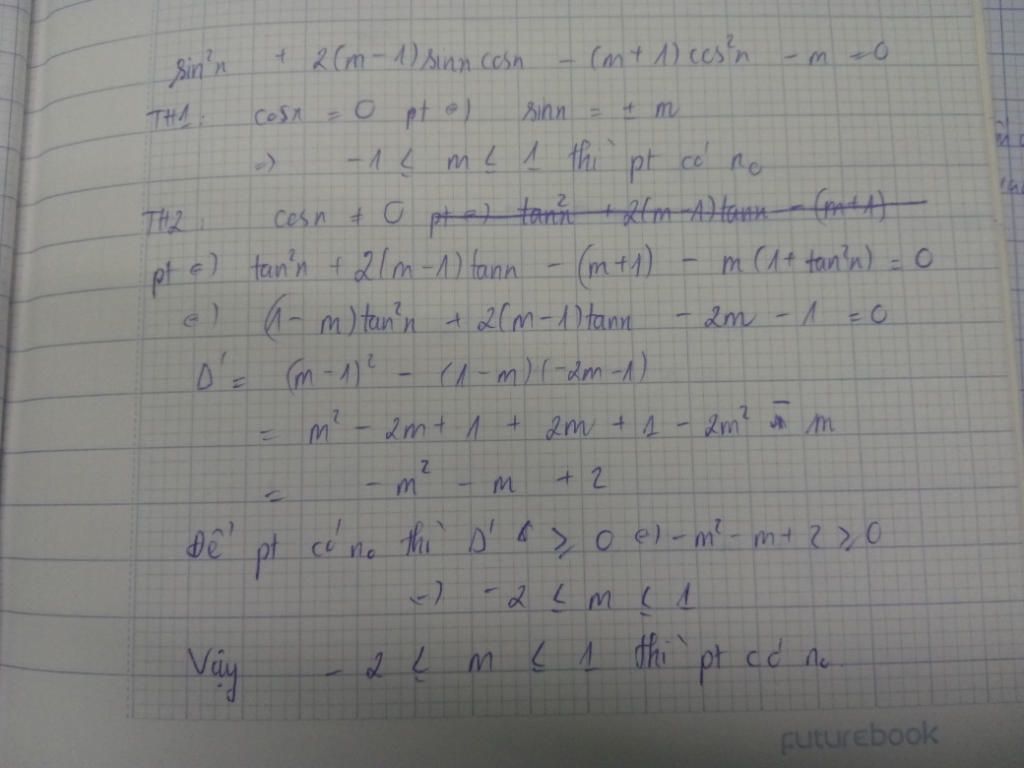 sin²x + 2(m-1)sinx cosx - (m+1)cos²x - m = 0
TH1: cosx = 0 pt ⇔) sinx = ± m
=> -1 ≤ m ≤ 1 thì pt có no
TH2: cosx ≠ 0 pt ⇔) tan²x + 2(m-1)tanx - (m+1)
pt ⇔) tan²x + 2(m-1)tanx - (m+1) - m(1+tan²x) = 0
⇔) (1-m)tan²x + 2(m-1)tanx - 2m - 1 = 0
Δ' = (m-1)² - (1-m)(-2m-1)
= m² - 2m + 1 + 2m + 1 - 2m² - m
= -m² - m + 2
Để pt có no thì Δ' ≥ 0 ⇔) -m² - m + 2 ≥ 0
⇔) -2 ≤ m ≤ 1
Vậy -2 ≤ m ≤ 1 thì pt có no
futurebook